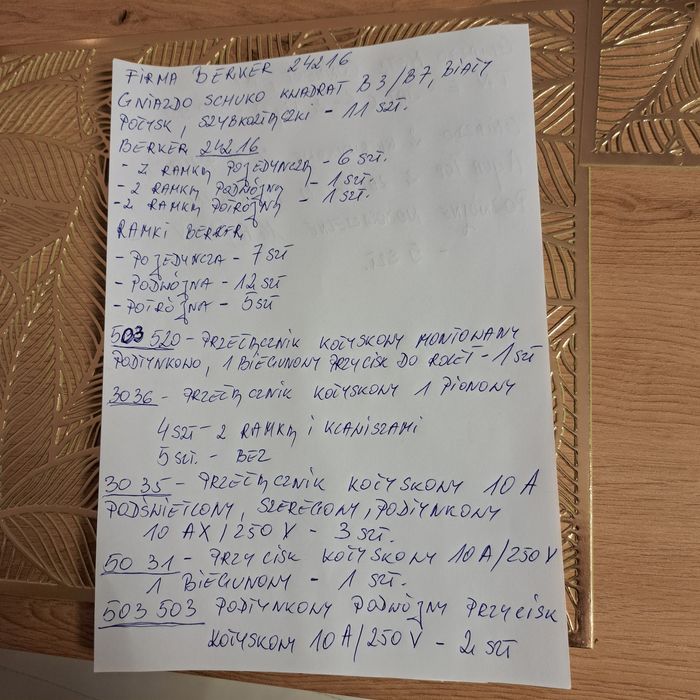 FIRMA BERKER 24216
GNIAZDO SCHUKO KWADRAT B3/B7, BIAŁY
POŁYSK, SZYBKOZŁĄCZKI - 11 SZT.
BERKER 24216
- Z RAMKĄ POJEDYNCZĄ - 6 SZT.
- Z RAMKĄ PODWÓJNĄ - 1 SZT.
- Z RAMKĄ POTRÓJNĄ - 1 SZT.
RAMKI BERKER
- POJEDYNCZA - 7 SZT
- PODWÓJNA - 12 SZT
- POTRÓJNA - 5 SZT
503 520 - PRZEŁĄCZNIK KOŁYSKOWY MONTOWANY
PODTYNKOWO, 1 BIEGUNOWY PRZYCISK DO ROLET - 1 SZT
3036 - PRZEŁĄCZNIK KOŁYSKOWY 1 PIONOWY
4 SZT - Z RAMKĄ I KLAWISZAMI
5 SZT. - BEZ
3035 - PRZEŁĄCZNIK KOŁYSKOWY 10 A
PODŚWIETLONY, SZEREGOWY, PODTYNKOWY
10 AX/250 V - 3 SZT.
5031 - PRZYCISK KOŁYSKOWY 10A/250V
1 BIEGUNOWY - 1 SZT.
503 503 PODTYNKOWY PODWÓJNY PRZYCISK
KOŁYSKOWY 10A/250V - 2 SZT